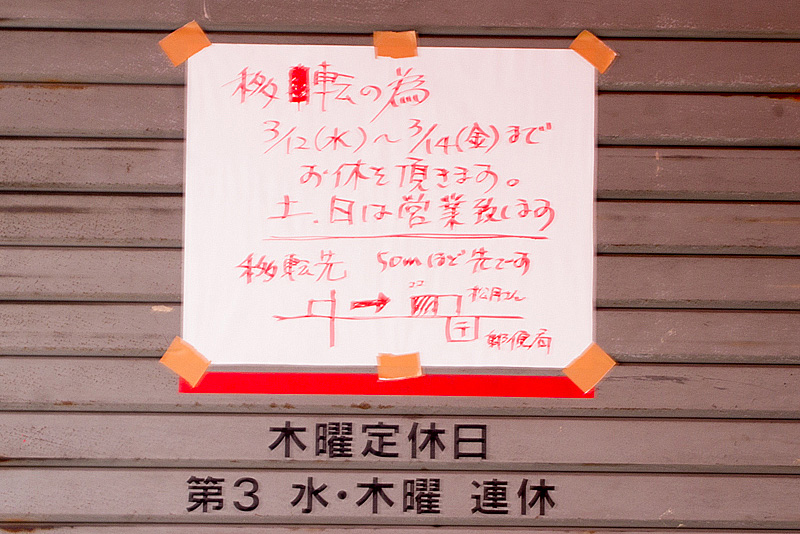 移転の為
3/12(水)～3/14(金)まで
お休を頂きます。
土.日は営業致します
移転先 50mほど先です
ココ 松月さん
〒 郵便局
木曜定休日
第3 水・木曜 連休